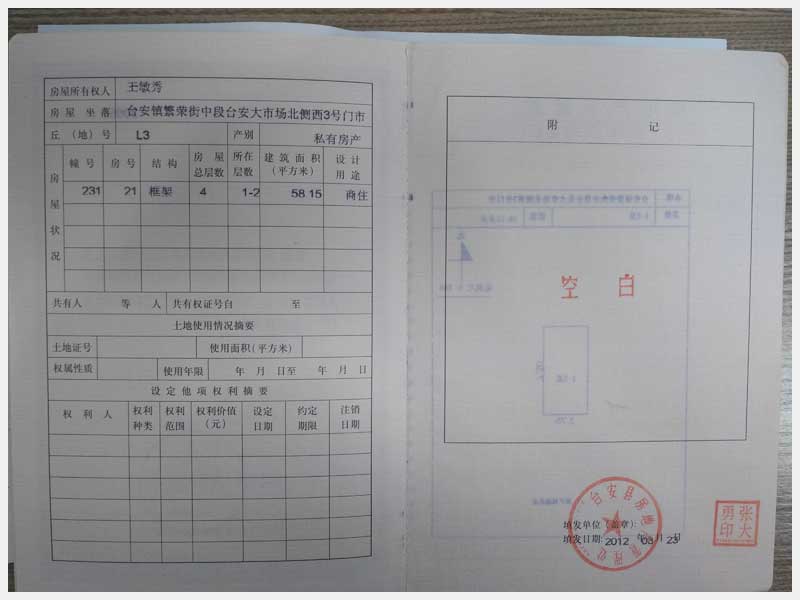 房屋所有权人 王敏秀
房屋坐落 台安镇繁荣街中段台安大市场北侧西3号门市
丘(地)号 L3 产别 私有房产
房屋状况
幢号 房号 结构 房屋总层数 所在层数 建筑面积(平方米) 设计用途
231 21 框架 4 1-2 58.15 商住
共有人 等 人 共有权证号自 至
土地使用情况摘要
土地证号 使用面积(平方米)
权属性质 使用年限 年 月 日至 年 月 日
设定他项权利摘要
权利人 权利种类 权利范围 权利价值(元) 设定日期 约定期限 注销日期
附 记
空 白
台安县房地
填发单位(盖章):
填发日期: 2012 年 03 月 23 日
张大勇印